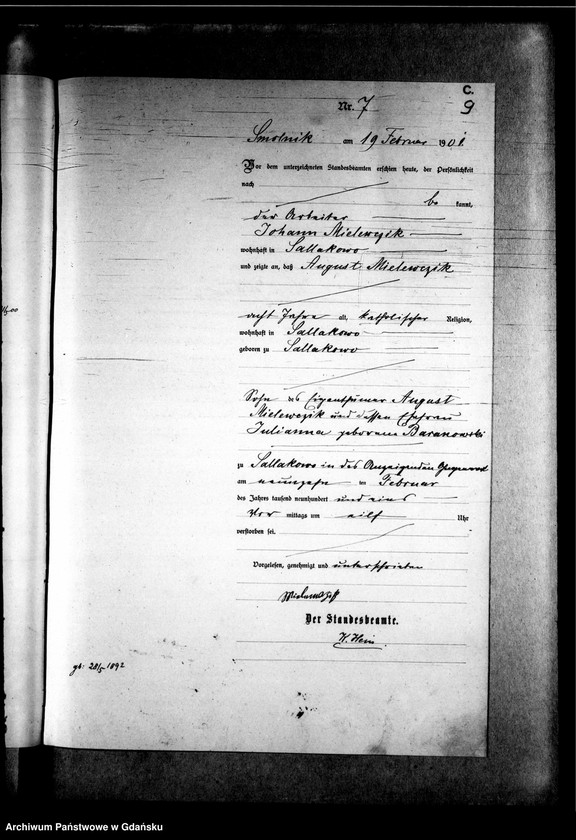 C.
Nr. 7
9
Smolnik am 19 Februar 1901
Vor dem unterzeichneten Standesbeamten erschien heute, der Persönlichkeit
nach
be kannt,
der Arbeiter
Johann Mielewczik
wohnhaft in Sallakowo
und zeigte an, daß August Mielewczik
acht Jahre alt, katholischer Religion,
wohnhaft in Sallakowo
geboren zu Sallakowo
Sohn des Eigenthümer August
Mielewczik und dessen Ehefrau
Julianna geborene Baranowski
zu Sallakowo in des Anzeigenden Gegenwart
am neunzehn ten Februar
des Jahres tausend neunhundert und eins
Vor mittags um eilf Uhr
verstorben sei.
Vorgelesen, genehmigt und unterschrieben
Der Standesbeamte.
H. Hein
gb. 28/5 1892
Archiwum Państwowe w Gdańsku